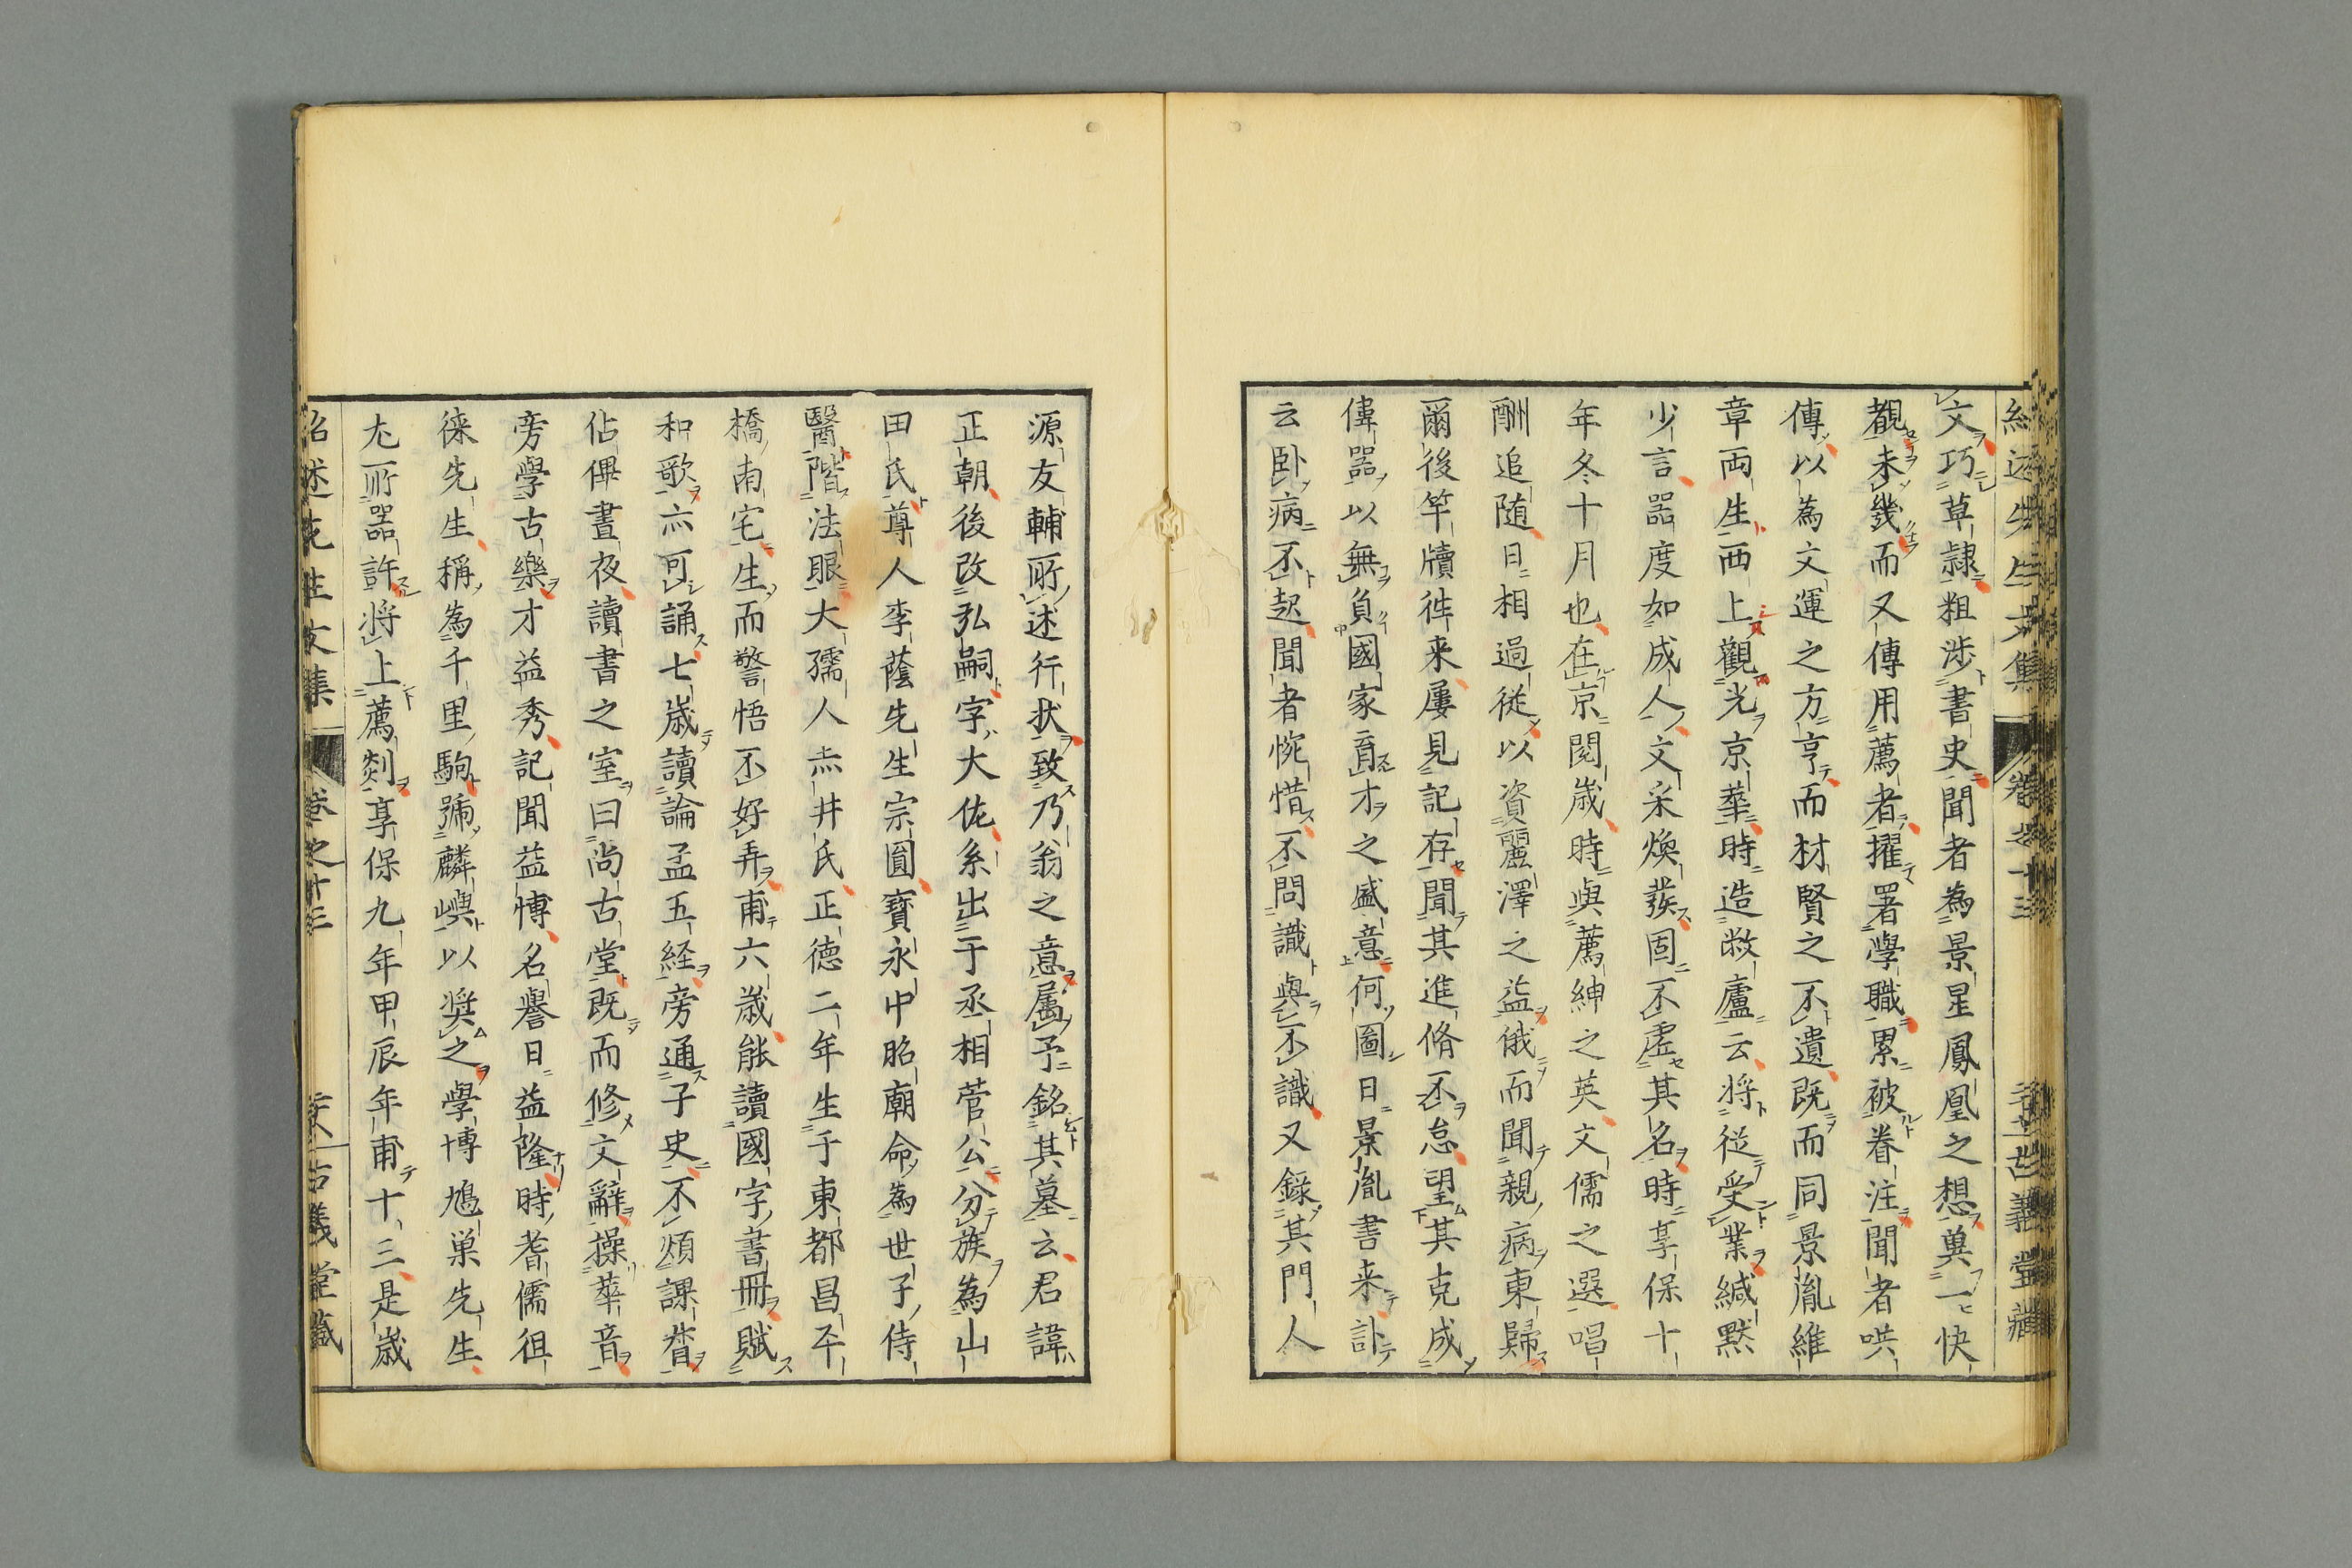 文巧草隸粗涉書史聞者為景星鳳凰之想冀一快
覩未幾而又傳用薦者擢署學職累被眷注聞者哄
傳以為文運之方亨而材賢之不遺既而同景胤維
章両生西上觀光京華時造敝廬云将從受業緘黙
少言器度如成人文采煥發固不虛其名時享保十
年冬十月也在京閱歲時與薦紳之英文儒之選唱
酬追随日相過從以資麗澤之益俄而聞親病東歸
爾後竿牘徃来屢見記存聞其進脩不怠望其克成
偉器以無負國家育才之盛意何圖日景胤書来訃
云卧病不起聞者惋惜不問識與不識又錄其門人
源友輔所述行狀致乃翁之意属予銘其墓云君諱
正朝後改弘嗣字大佐系出于丞相菅公分族為山
田氏尊人李蔭先生宗圓寳永中昭廟命為世子侍
醫階法眼大孺人赤井氏正徳二年生于東都昌平
橋南宅生而警悟不好弄甫六歲能讀國字書冊賦
和歌亦可誦七歲讀論孟五経旁通子史不煩課督
佔俾晝夜讀書之室曰尚古堂既而修文辭操華音
旁學古樂才益秀記聞益博名譽日益隆時耆儒徂
徠先生稱為千里駒號麟嶼以奨之學博鳩巣先生
尤所器許将上薦剡享保九年甲辰年甫十三是歲
紹述先生文集 卷之十三 古義堂藏